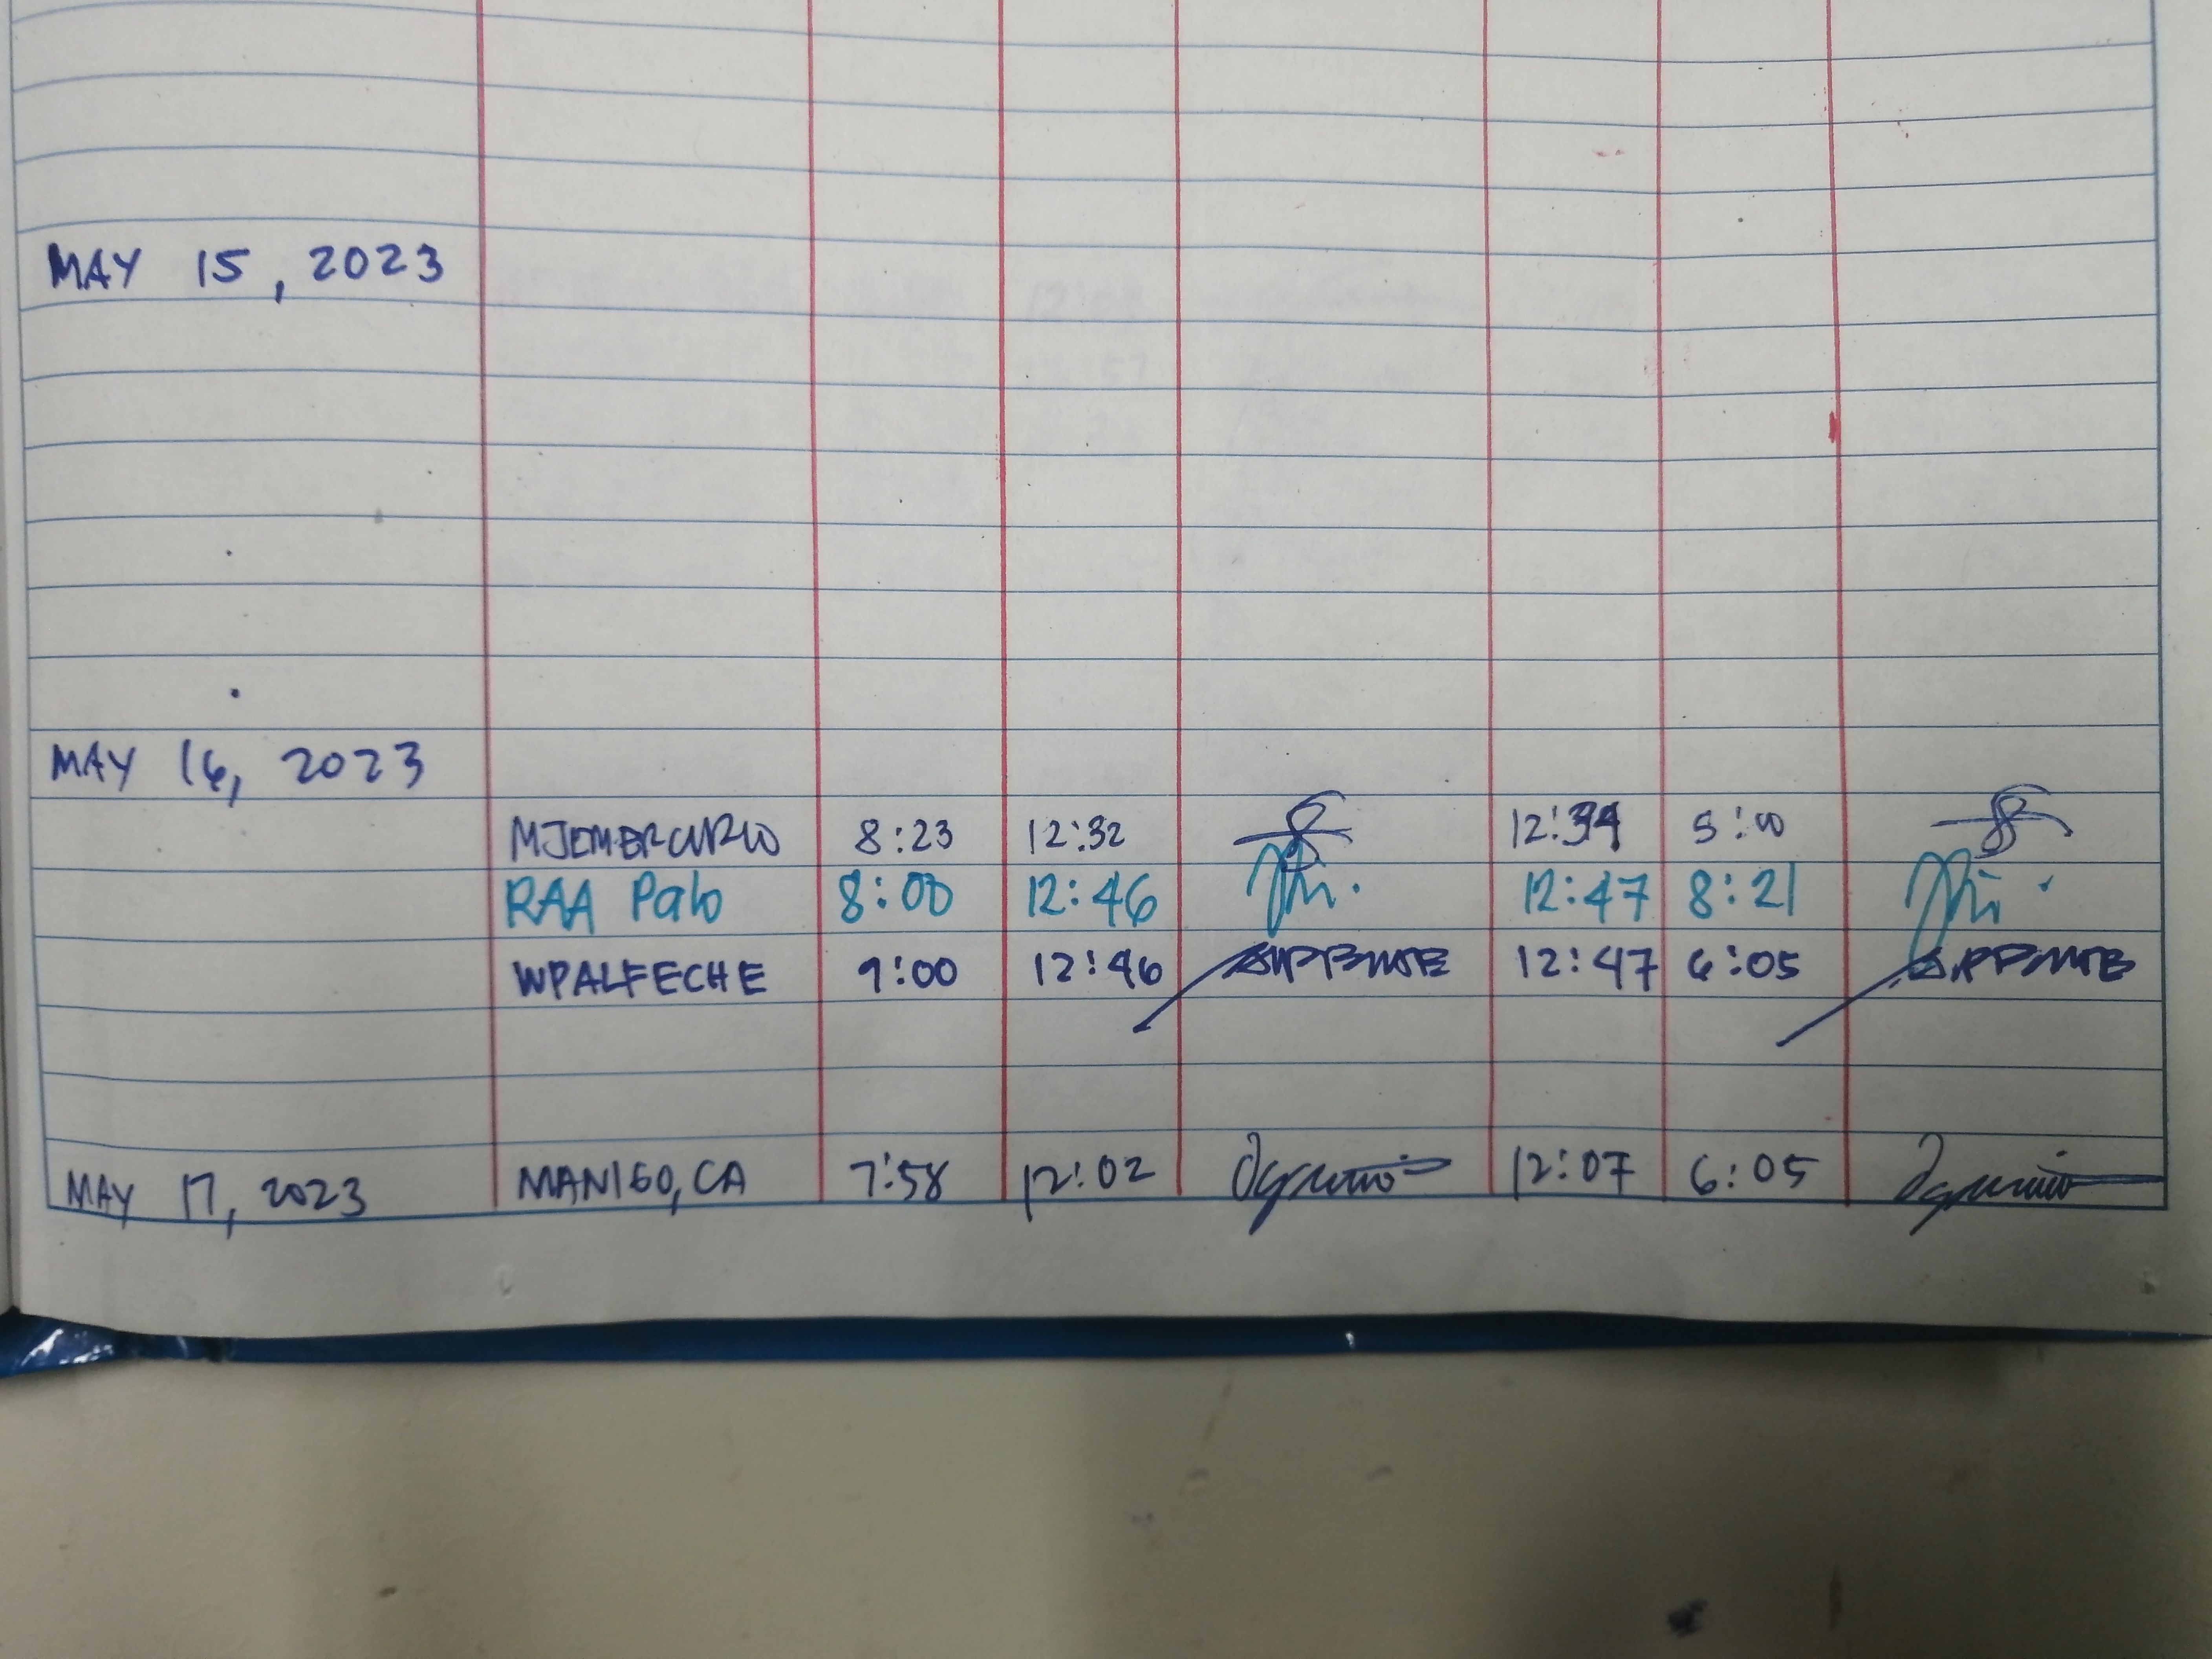 MAY 15, 2023
MAY 16, 2023
8:23 12:32 12:34 5:00
RAA Palo 8:00 12:46 12:47 8:21
WPALFECHE 9:00 12:46 12:47 6:05
MAY 17, 2023 MANIGO, CA 7:58 12:02 12:07 6:05